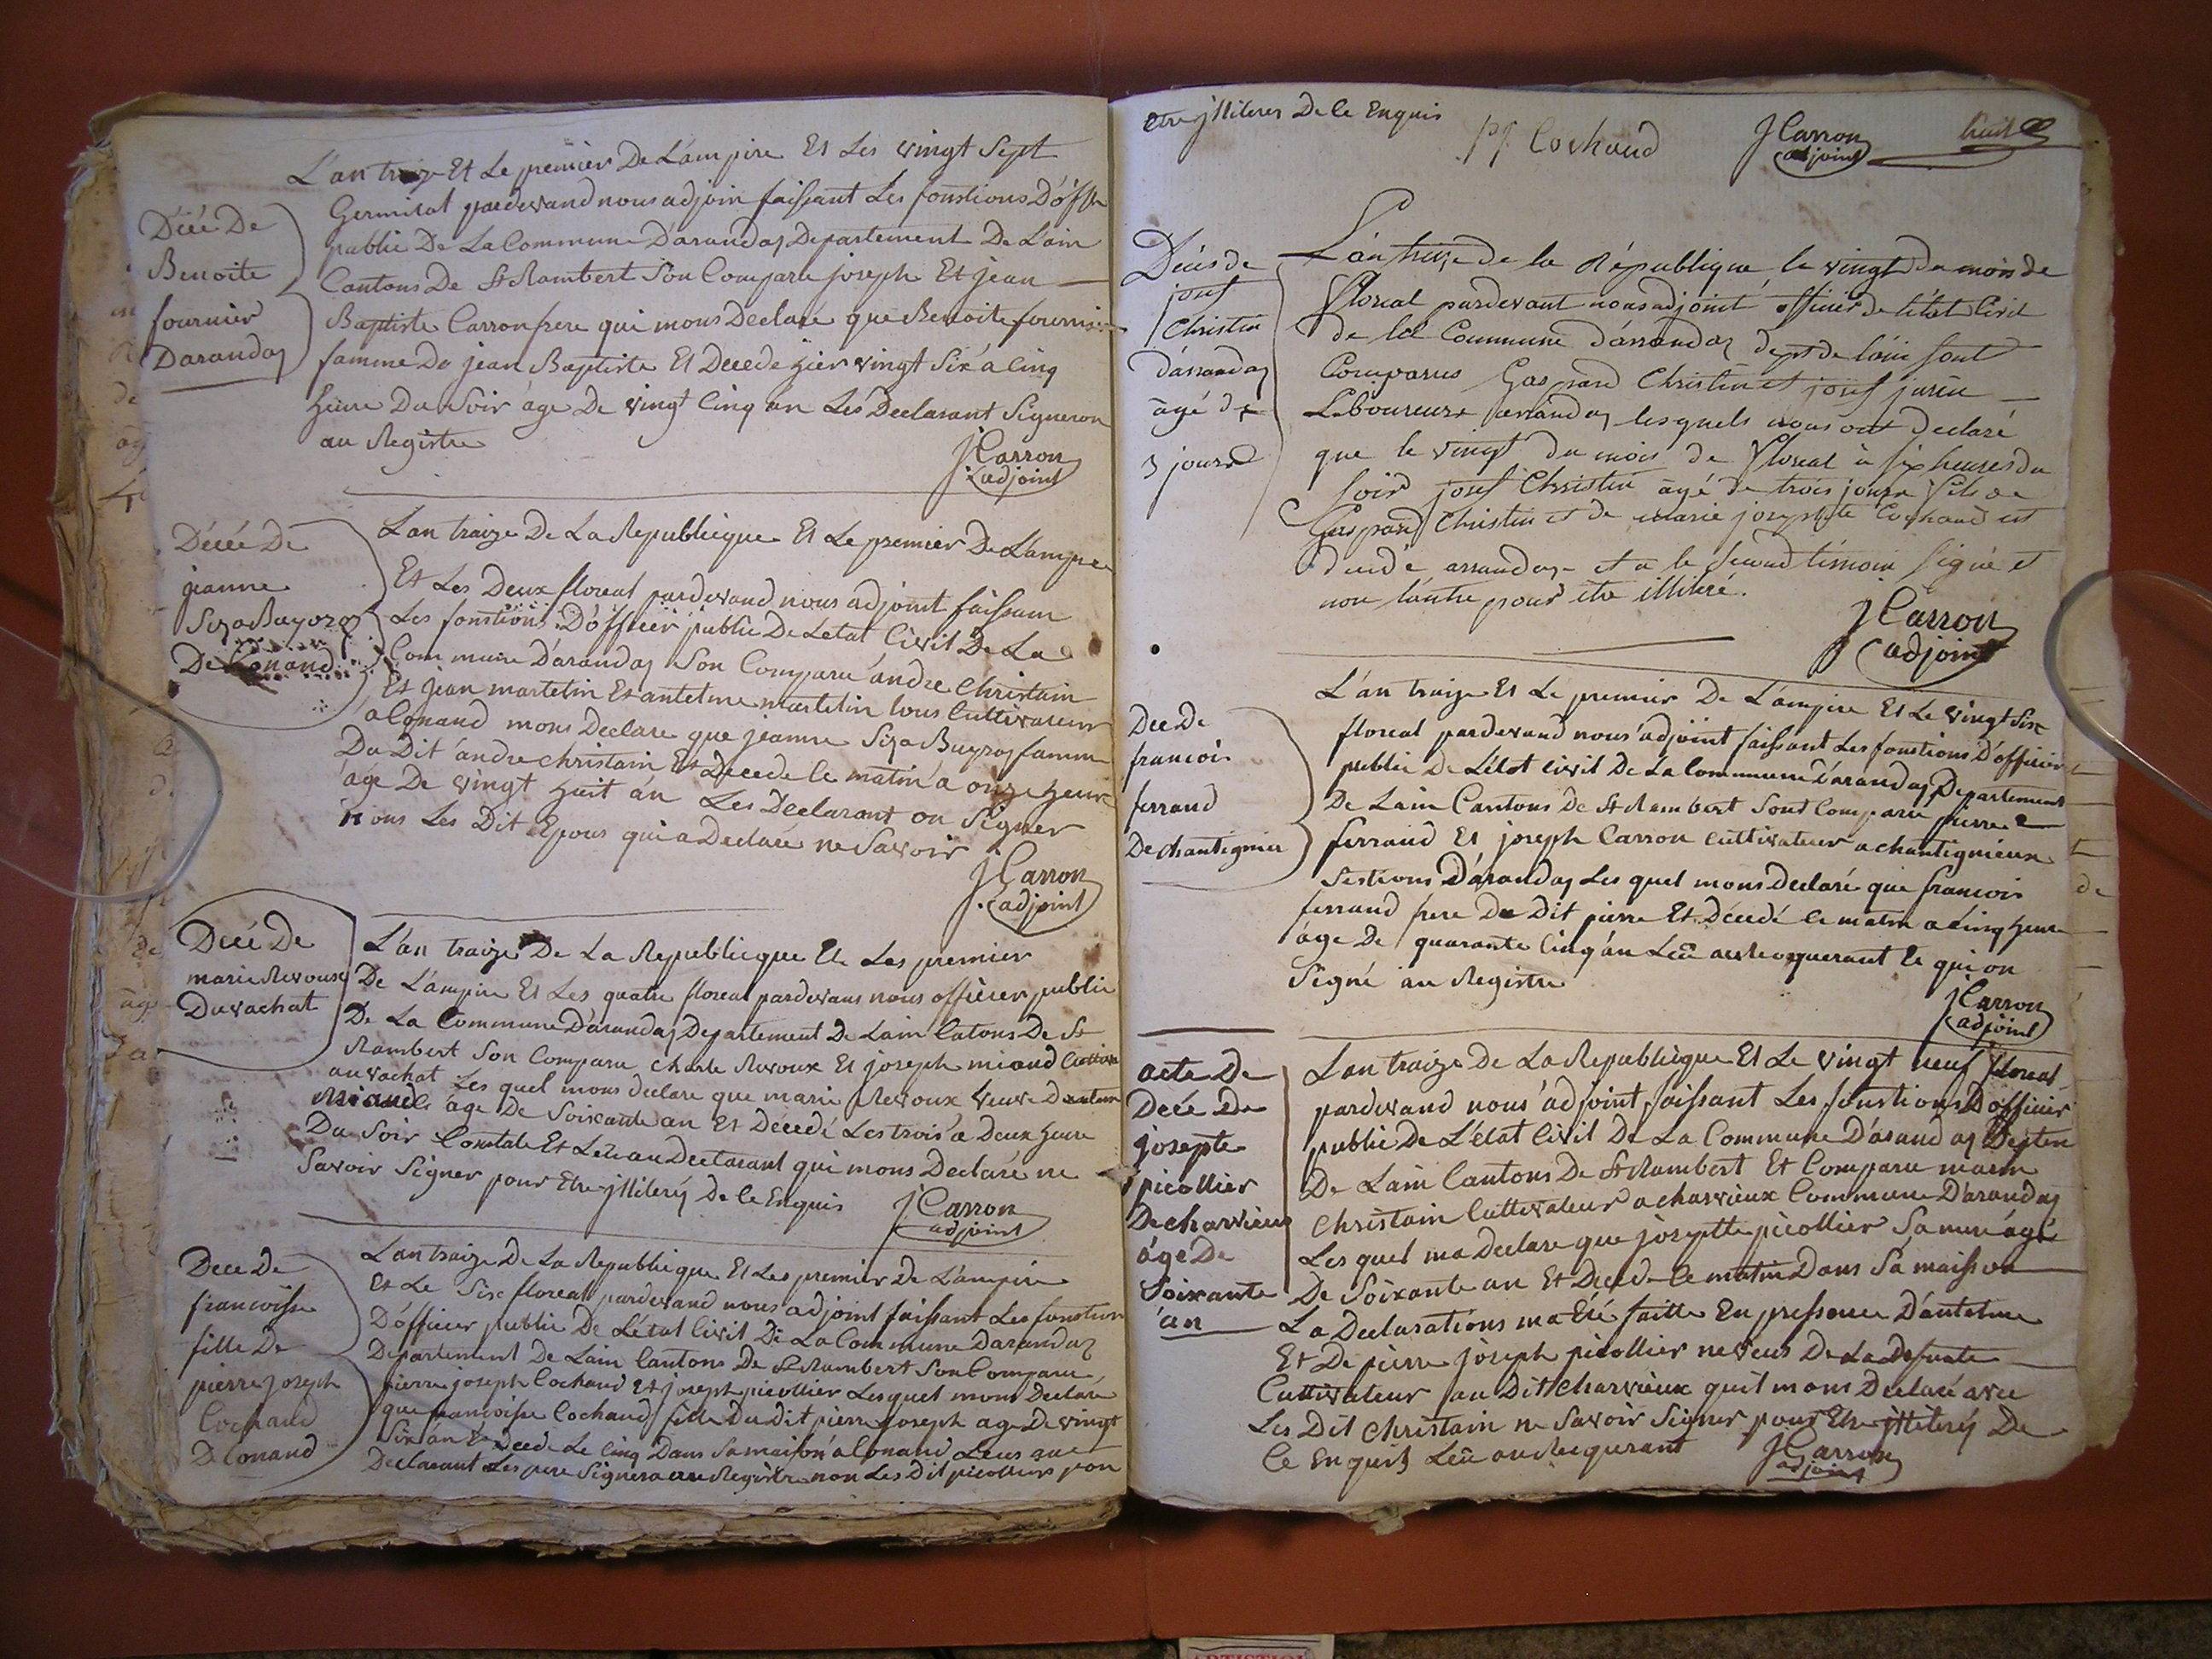 L'an traize Et Le premier De L'ampire Et Les vingt Sept
Décé De
Benoite
fournier
Darandas
Germinal pardevand nous adjoin faissant Les fonstions D'off
public De La Commune D'arandas Departement De L'ain
Cantons De St Rambert Son Compare joseph Et jean
Baptiste Carron frere qui mous Declaré que Benoite fournier
famme Du jean Baptiste Et Decede hier vingt Six a Cinq
heure Du Soir age De vingt Cinq an Les Declarant Signeron
au Registre
J Carron
adjoint
Décéé De
jeanne
De Conand
L'an traize De La Republicque Et Le premier De L'ampire
Et Les Deux floreal pardevand nous adjoint faissant
Les fonstions D'officier public De Letat Civil De La
Commune D'arandas Son Comparu andre Christain
Et Jean martelin Et antelme martelin tous Cultivateur
a Conand mous Declare que jeanne famme
Du Dit andre christain Et Decede Ce matin a onze heure
age De vingt huit an Les Declarant on Signer
non Les Dit Epous qui a Declaré ne Savoir
J Carron
adjoint
Décé De
marie Revoux
Du vachat
L'an traize De La Republicque Et Les premier
De L'ampire Et Les quatre floreal pardevans nous officier public
De La Commune D'arandas Departement De Lain Catons De St
Rambert Son Comparu Charle Revoux Et joseph miand Cultiva
au vachat Les quel mous Declare que marie Revoux veuve D
Miand age De Soixante an Et Décedé Les trois a Deux heure
Du Soir Constate Et Leu au Declarant qui mous Declaré ne
Savoir Signer pour Etre jlliterés De Ce Enquis
J Carron
adjoint
Decé De
francoisse
fille De
pierre joseph
Cochand
De Conand
L'an traize De La Republicque Et Les premier De L'ampire
Et Le Six floreal pardevand nous adjoint faissant Les fonstion
D'officier public De L'état Civil De La Commune Darandas
Departement De Lain Cantons De St Rambert Son Comparu
pierre joseph Cochand Et joseph picollier Lesquel mous Declaré
que francoisse Cochand fille Du dit pierre joseph age De vingt
Six an Et Décédé Le Cinq Dans Sa maison a Conand Leus au
Declarant Les pere Signera au Registre non Les Dit picolliers pour
Etre jlliteres De Ce Enquis
Pj Cochaud
J Carron
adjoint
huit
Décès de
josef
Christin
d'arandas
âgé de
3 jours
L'an treize de la République le vingt du mois de
floreal pardevant nous adjoint officier de l'état Civil
de la Commune d'arrandas dept de l'ain sont
Comparus Gaspard Christin et josef juvin
Laboureurs arrandas lesquels nous ont declaré
que le vingt du mois de floreal à six heures du
soir josef Christin âgé de trois jours fils de
Gaspard Christin et de marie josephte Cochand est
decedé arrandas et a le second témoin signé et
non l'autre pour être illitéré.
J Carron
adjoint
Dece De
francois
ferrand
De chantignieu
L'an traize Et Le premier De L'ampire Et Le vingt Six
floreal pardevand nous adjoint faissant Les fonstions D'officier
public De L'état Civil De La Commune D'arandas Departement
De Lain Cantons De St Rambert Sont Comparu pierre
ferrand Et joseph Carron Cultivateur a chantignieux
Sestions D'arandas Les quel mous Declaré que francois
ferrand frere Du Dit pierre Et Décedé Ce matin a Cinq heure
age De quarante Cinq an Leû au Recquerant Ce qui on
Signé au Registre
J Carron
adjoint
acte De
Décé De
josepte
picollier
De charvieux
âgé De
Soixante
an
L'an traize De La Republicque Et Le vingt neuf floreal
pardevand nous adjoint faissant Les fonstions D'officier
public De L'état Civil De La Commune D'arandas Depten
De Lain Cantons De St Rambert Et Comparu marin
Christain Cultivateur a charvieux Commune D'arandas
Les quel ma Declare que josephtte picollier Sa mere âgé
De Soixante an Et Décede Ce matin Dans Sa maisson
La Declarations ma Eté faitte En pressance D'antelme
Et De pierre joseph picollier neveus De La Defunte
Cultivateur au Dit charvieux quit mous Declaré avec
Les Dit Christain ne Savoir Signer pour Etre jlliterés De
Ce Enquis Leû au Recqurant
J Carron
adjoint